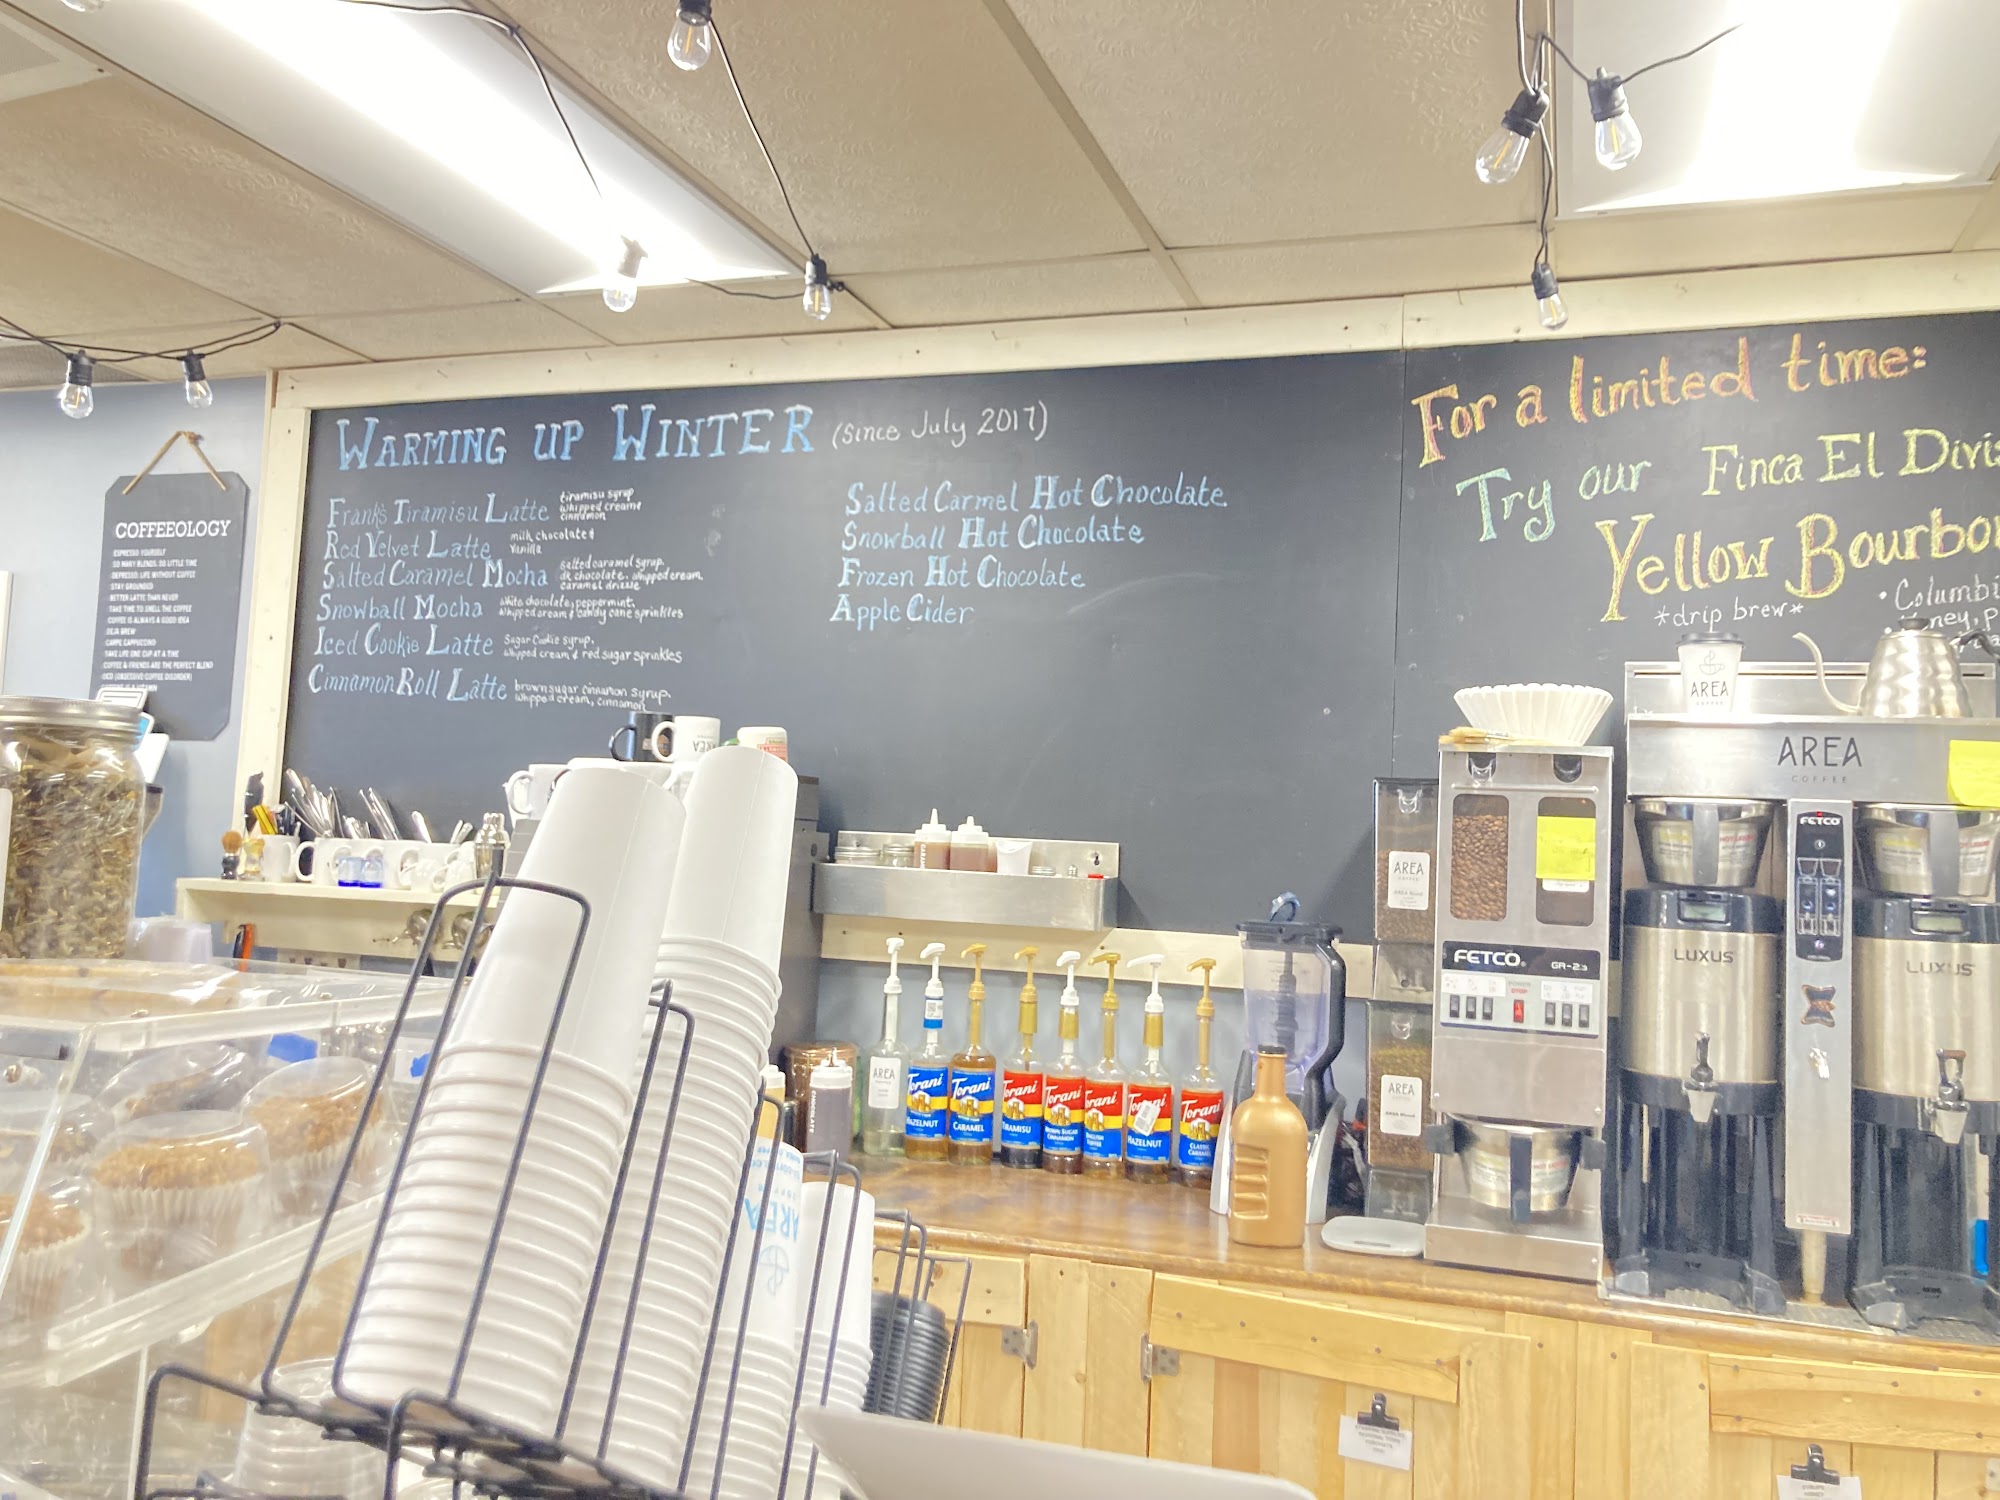 WARMING UP WINTER (since July 2017)
Frank's Tiramisu Latte
tiramisu syrup
whipped cream &
cinnamon
Red Velvet Latte
milk chocolate &
vanilla
Salted Caramel Mocha
salted caramel syrup,
dk chocolate, whipped cream,
caramel drizzle
Snowball Mocha
white chocolate, peppermint,
whipped cream & candy cane sprinkles
Iced Cookie Latte
sugar cookie syrup,
whipped cream & red sugar sprinkles
Cinnamon Roll Latte
brown sugar cinnamon syrup,
whipped cream, cinnamon
Salted Carmel Hot Chocolate
Snowball Hot Chocolate
Frozen Hot Chocolate
Apple Cider
For a limited time:
Try our Finca El Divis
Yellow Bourbo
*drip brew*
• Columbi
COFFEEOLOGY
ESPRESSO YOURSELF
SO MANY BLENDS, SO LITTLE TIME
DEPRESSO: LIFE WITHOUT COFFEE
STAY GROUNDED
BETTER LATTE THAN NEVER
TAKE TIME TO SMELL THE COFFEE
COFFEE IS ALWAYS A GOOD IDEA
DEJA BREW
CARPE CAPPUCCINO
TAKE LIFE ONE CUP AT A TIME
COFFEE & FRIENDS ARE THE PERFECT BLEND
OCD (OBSESSIVE COFFEE DISORDER)
AREA
COFFEE
AREA
COFFEE
AREA
AREA
AREA
AREA
FETCO
GR-2.3
FETCO
LUXUS
LUXUS
AREA
CHOCOLATE
Torani
HAZELNUT
Torani
CARAMEL
Torani
TIRAMISU
Torani
BROWN SUGAR
CINNAMON
Torani
ENGLISH
TOFFEE
Torani
HAZELNUT
Torani
CLASSIC
CARAMEL
AREA